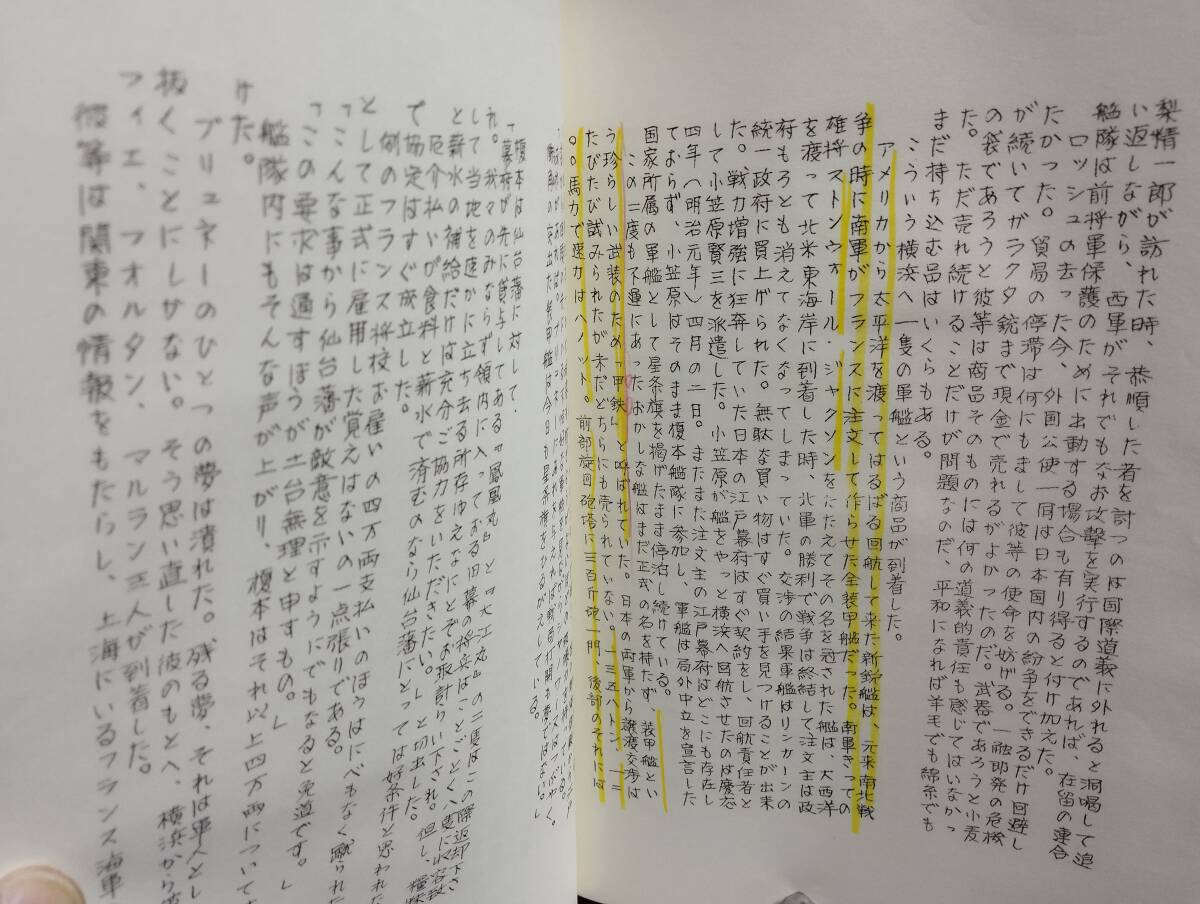 梨精一郎が訪れた時、恭順した者を討つのは国際道義に外れると洞喝して追
い返しながら、西軍がそれでもなお攻撃を実行するのであれば、在留の連合
艦隊は前将軍保護のために出動する場合も有り得ると付け加えた。
ロッシュの去った今、外国公使一同は日本国内の紛争をできるだけ回避し
たかった。貿易の停滞は何にもまして彼等の使命を妨げる。一触即発の危機
が続いてガラクタ銃まで現金で売れるがよかったのだ。武器であろうと小麦
の袋であろうと彼等は商品そのものには何の道義的責任も感じてはいなかっ
た。ただ売れ続けることだけが問題なのだ、平和になれば羊毛でも綿糸でも
まだ持ち込む品はいくらもある。
こういう横浜へ一隻の軍艦という商品が到着した。
アメリカから太平洋を渡ってはるばる回航して来た新鋭艦は、元来南北戦
争の時に南軍がフランスに注文して作らせた全装甲艦だった。南軍きっての
雄将ストンウォール・ジャクソンをにたえてその名を冠された艦は、大西洋
を渡って北米東海岸に到着した時、北軍の勝利で戦争は終結して注文主は政
府もろとも消えてなくなってしまっていた。交渉の結果軍艦はリンカーンの
統一政府に買上げられた。無駄な買い物はすぐ買い手を見つけることが出来
た。戦力増強に狂奔していた日本の江戸幕府はすぐ契約をし、回航責任者と
して小笠原賢三を派遣した。小笠原が艦をやっと横浜へ回航させたのは慶応
四年(明治元年)四月の二日。またまた注文主の江戸幕府はどこにも存在し
ておらず、小笠原はそのまま榎本艦隊に参加し、軍艦は局外中立を宣言した
国家所属の軍艦として星条旗を掲げたまま停泊し続けている。
この二度も不運にあったおかしな艦はまだ正式の名を持たず、装甲艦とい
う珍らしい武装のため「甲鉄」と呼ばれていた。日本の両軍から譲渡交渉は
たびたび試みられたが未だどちらにも売られていない。一三五八トン、一二
〇〇馬力で速力は八ノット。前部旋回砲塔に三百斤砲一門、後部のそれには
榎本は仙台藩に対して、
「幕府が先に貸与してある『鳳凰丸』と『大江丸』の二隻はこの際返却下さ
れ。我マのみならず領内に入っておる旧幕の将兵はことごとく八隻に収容致
して当地を速かに立ち去る所存ゆえなにとぞお取計らい下されo但し、糧
と薪水の補給だけは充分ご協力をいただきたい。」と切出した。
厄介払いが食料と薪水で済むのなら仙台藩にとっては好条件と思われた
で協定はすぐ成立した。
例のフランス将校お雇いの四万両支払いのほうはにべもなく蹴られた
として正式に雇用した覚えはないの一点張りである。
「こんな事から仙台藩が敵意を示すようにでもなると免道です。」
「この要求は通すほうが土台無理と申すもの。」
艦隊内にもそんな声が上がり、榎本はそれ以上四万両について
けた。
ブリュネーのひとつの夢は潰れた。残る夢、それは軍人とし
抜くことにしかない。そう思い直した彼のもとへ、横浜から
フィエ、フオルタン、マルラン三人が到着した。
彼等は関東の情報をもたらし、上海にいるフランス海軍